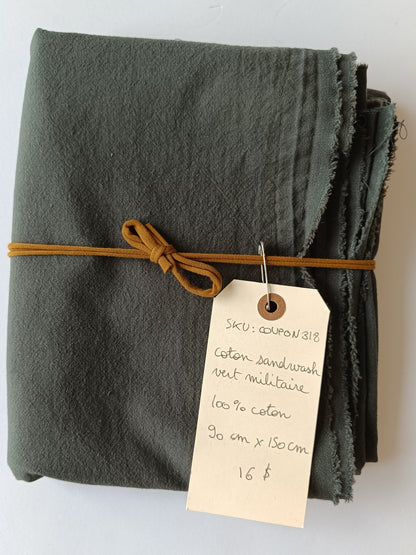 SKU: COUPON318
coton sandwash
vert militaire
100% coton
90 cm x 150cm
16 $